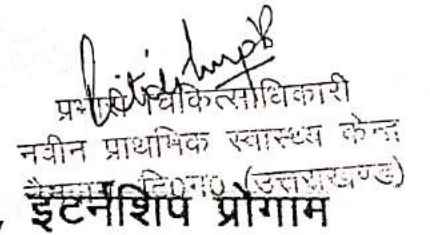 प्रभारी चिकित्साधिकारी
नवीन प्राथमिक स्वास्थ्य केन्द्र
टि0ग0 (उत्तराखण्ड)
इंटर्नशिप प्रोग्राम